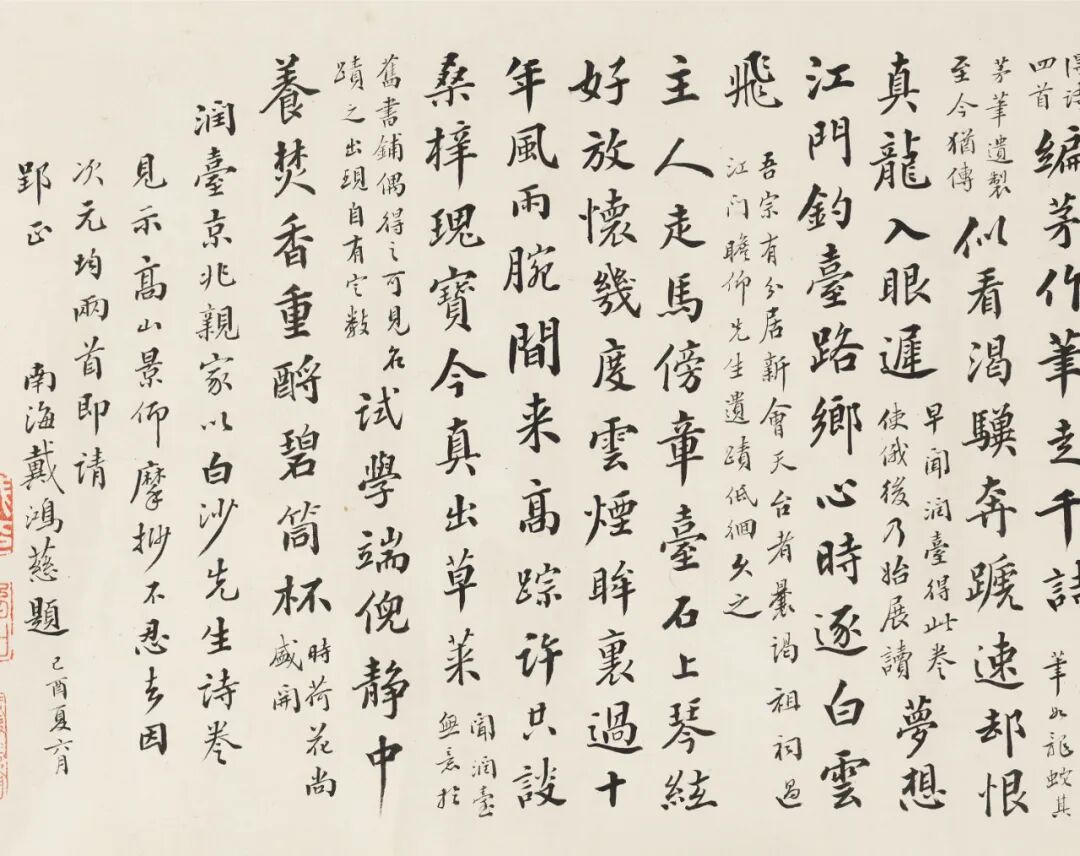 四首
編茅作筆走千
筆如龍蛇其
茅筆遺製
至今猶傳
似看渴驥奔踶速却恨
真龍入眼遲
早聞潤臺得此卷
使俄後乃始展讀
夢想
江門釣臺路鄉心時逐白雲
飛
吾宗有分居新會天台者曩謁祖祠過
江门瞻仰先生遺蹟低徊久之
主人走馬傍章臺石上琴絃
好放懷幾度雲煙眸裏過十
年風雨腕間来高踪許共談
桑梓瑰寶今真出草莱
聞潤臺
無意於
舊書鋪偶得之可見名
蹟之出現自有定數
試學端倪静中
養焚香重酹碧筒杯
時荷花尚
盛開
潤臺京兆親家以白沙先生詩卷
見示高山景仰摩挱不忍去因
次元均兩首即請
郢正
南海戴鴻慈題
己酉夏六月